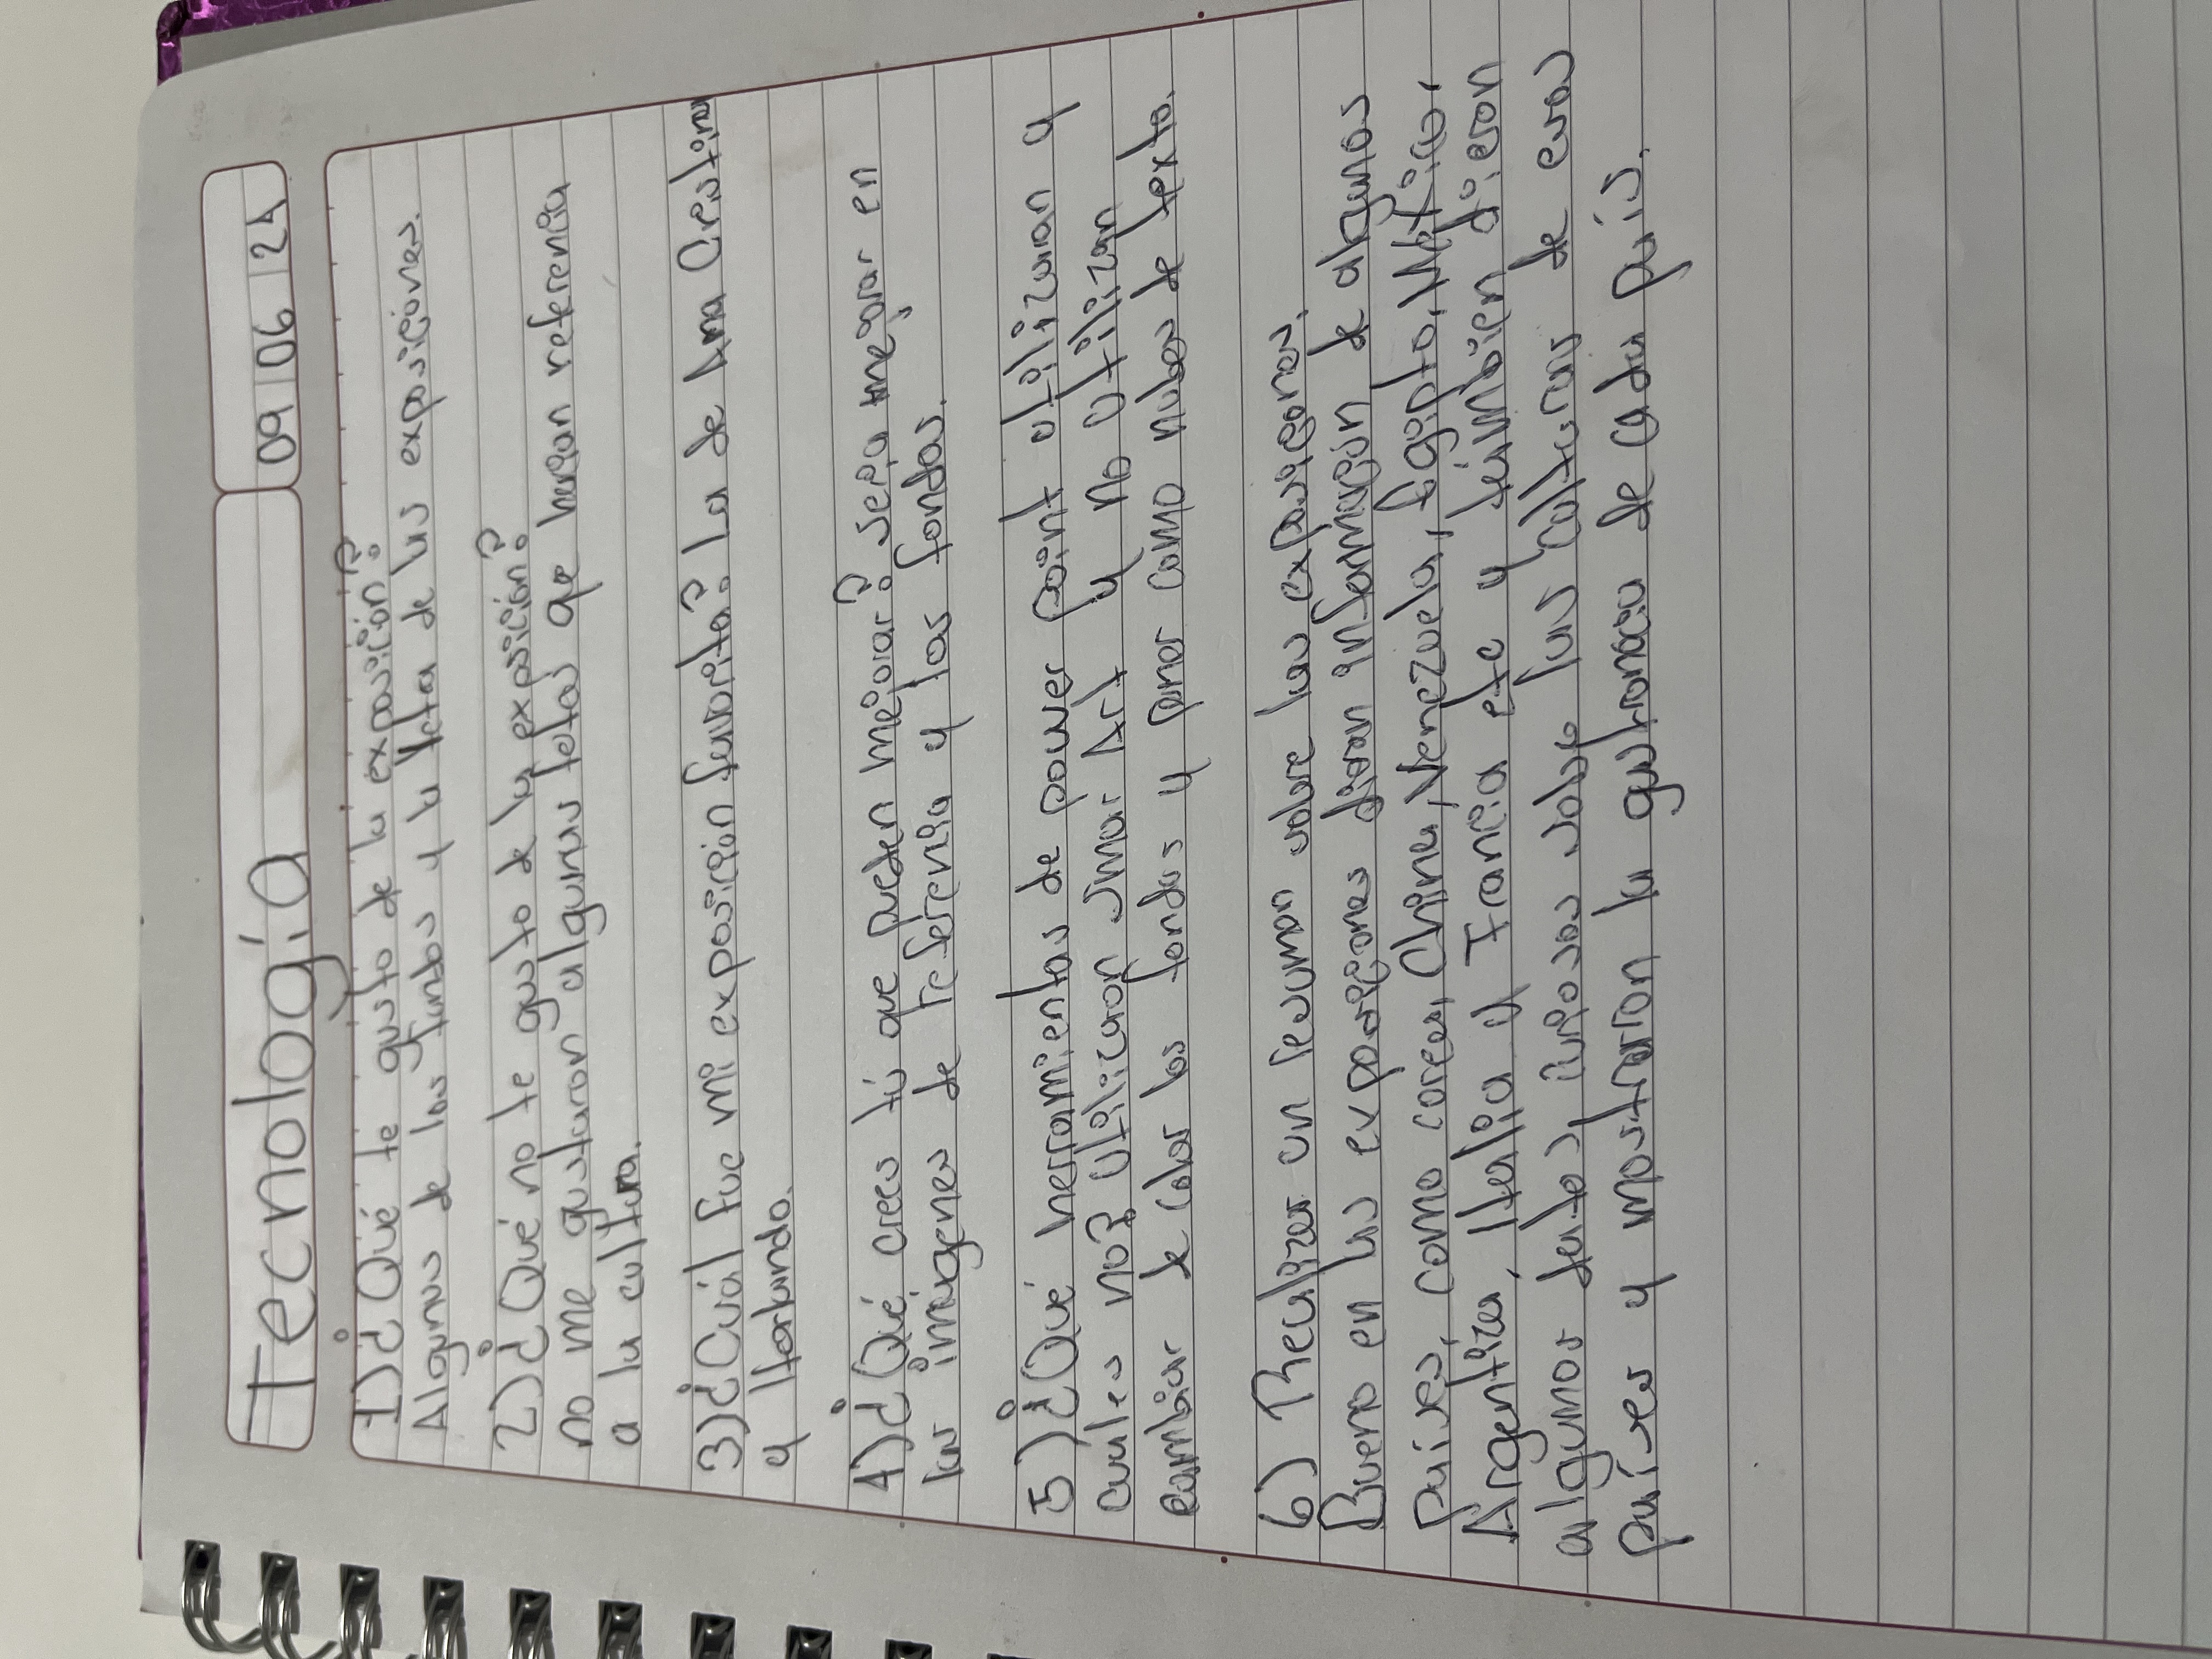 Tecnología
09 06 24
1) ¿Qué te gusto de la exposición?
Algunas de las funtos y la letra de las exposiciones.
2) ¿Qué no te gusto de la exposición?
no me gustaron algunas fotos que hacían referencia
a la cultura.
3) ¿Cuál fue mi exposición favorita? La de Ana Cristina
y Horlando.
4) ¿Qué crees tú que pueden mejorar? sería mejorar en
las imágenes de referencia y los fondos.
5) ¿Qué herramientas de power point utilizaron y
cuales no? utilizaron Smar Art y no utilizan
cambiar de color los fondos y poner como nubes de texto.
6) Realizar un resuman sobre las exposiciones.
Bueno en las exposiciones dieron información de algunos
países, como corea, China, Venezuela, Egipto, México,
Argentina, Italia y Francia etc y también dieron
algunos datos curiosos sobre las culturas de esos
países y mostraron la gastronomía de cada país.